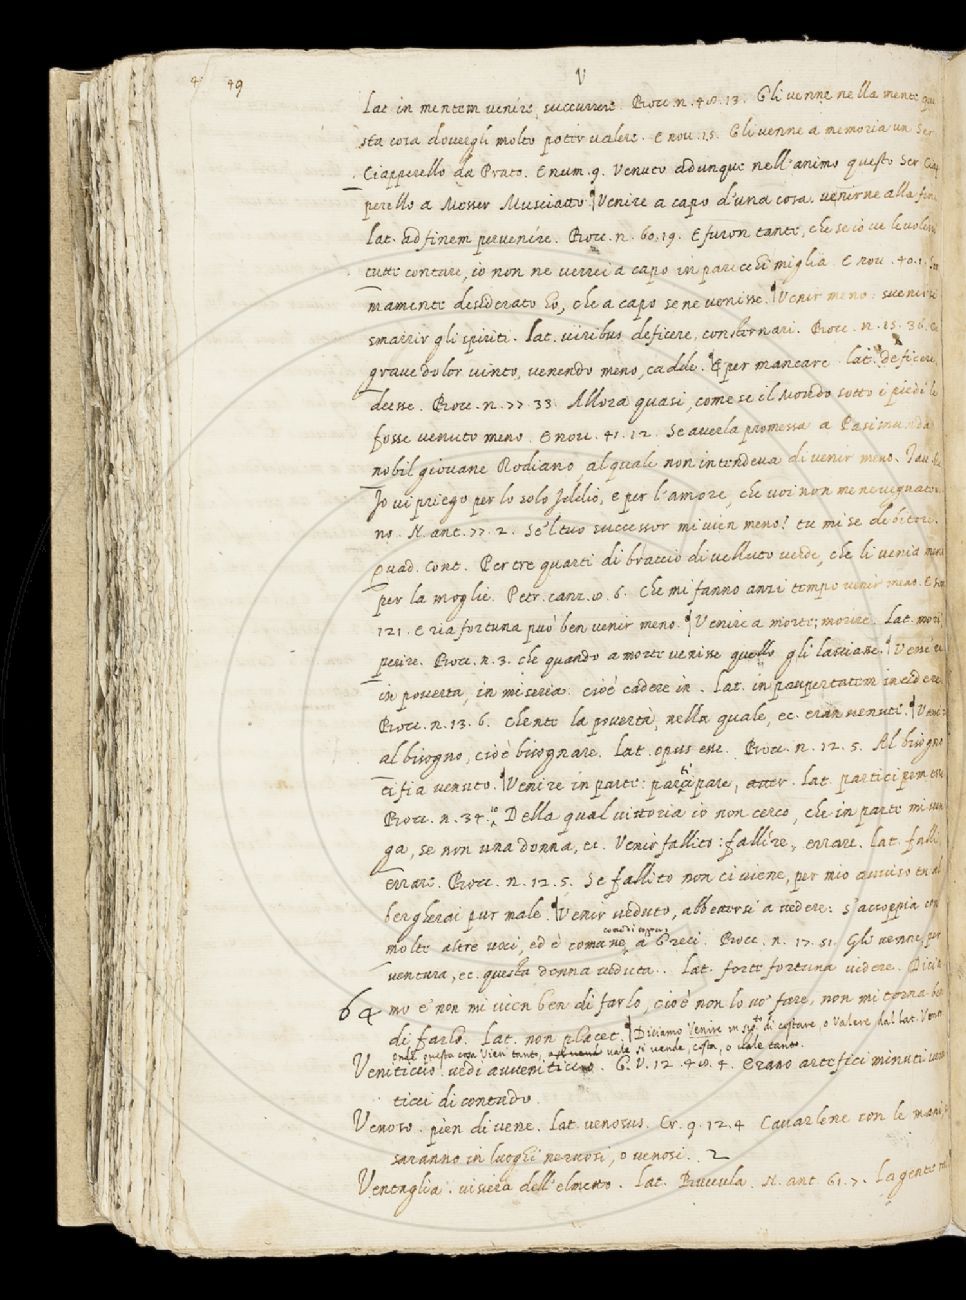 49
V
Lat. in mentem venire, succurrere. Bocc. n. 48. 13. Gli venne nella mente que
sta cosa dovergli molto poter valere. E nov. 15. Gli venne a memoria un Ser
Ciapperello da Prato. E num. 9. Venuto adunque nell'animo questo Ser Ciap
perello a Messer Musciatto. Venire a capo d'una cosa. venirne alla fine
Lat. ad finem pervenire. Bocc. n. 60. 19. E furon tante, che se io ve le volessi
tutte contare, io non ne verrei a capo in parecchi miglia. E nov. 40. 1.
mamente desiderato ho, che a capo se ne venisse. Venir meno: svenirsi
smarrir gli spiriti. Lat. viribus deficere, consternari. Bocc. n. 15. 36. Da
grave dolor vinto, venendo meno, cadde. E per mancare. Lat. deficere
deesse. Bocc. n. 77. 33. Allora quasi, come se il Mondo sotto i piedi le
fosse venuto meno. E nov. 41. 12. Se averla promessa a Pasimunda
nobil giovane Rodiano al quale non intendeva di venir meno.
Io vi priego per lo solo Iddio, e per l'amore, che voi non me ne vegnate
no. N. ant. 77. 2. Se'l tuo successor mi vien meno! tu mi se debitore.
Quad. Cont. Per tre quarti di braccio di velluto verde, che li venia meno
per la moglie. Petr. canz. 8. 6. Che mi fanno anzi tempo venir meno. E son
121. E ria fortuna può ben venir meno. Venire a morte; morire. Lat. mori,
perire. Bocc. n. 3. che quando a morte venisse quello gli lasciasse. Venire
in povertà, in miseria. cioè cadere in. Lat. in paupertatem incidere
Bocc. n. 13. 6. Chente la povertà, nella quale, ec. eran venuti. Venire
al bisogno, cioè bisognare. Lat. opus esse. Bocc. n. 12. 5. Al bisogno
ti fia venuto. Venire in parte: participare, Lat. participem esse
Bocc. n. 34. 10. Della qual vittoria io non cerco, che in parte mi ven
ga, se non una donna, ec. Venir fallito: fallire, errare. Lat. falli,
errare. Bocc. n. 12. 5. Se fallito non ci viene, per mio avviso tu al
bergherai pur male. Venir veduto, abbattersi a vedere: s'accoppia con
molte altre voci, ed è comune a Greci. Bocc. n. 17. 51. Gli venne, per
ventura, ec. questa donna veduta. Lat. forte fortuna videre. Dicia
64 mo e' non mi vien ben di farlo, cioè non lo vo' fare, non mi torna ben
di farlo. Lat. non placet. Diciamo Venire in sig.to di costare, o Valere dal lat. Veneo
onde questa cosa Vien tanto, vale si vende, costa, o vale tanto.
Veniticcio. vedi avveniticcio. G. V. 12. 48. 4. Erano artefici minuti
ticci di contado.
Venoso. pien di vene. Lat. venosus. Cr. 9. 12. 4 Cavarlene con le mani
saranno in luoghi nervosi, o venosi. 2
Ventaglia. visiera dell'elmetto. Lat. Buccula. N. ant. 61. 7. La gente